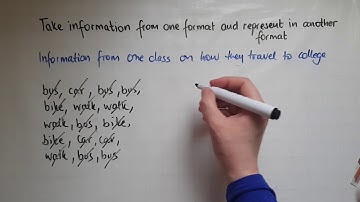 Take information from one format and represent in another
format
Information from one class on how they travel to college
bus, car, bus, bus,
bike, walk, walk,
walk, bus, bike,
bike, car, car,
walk, bus, bus